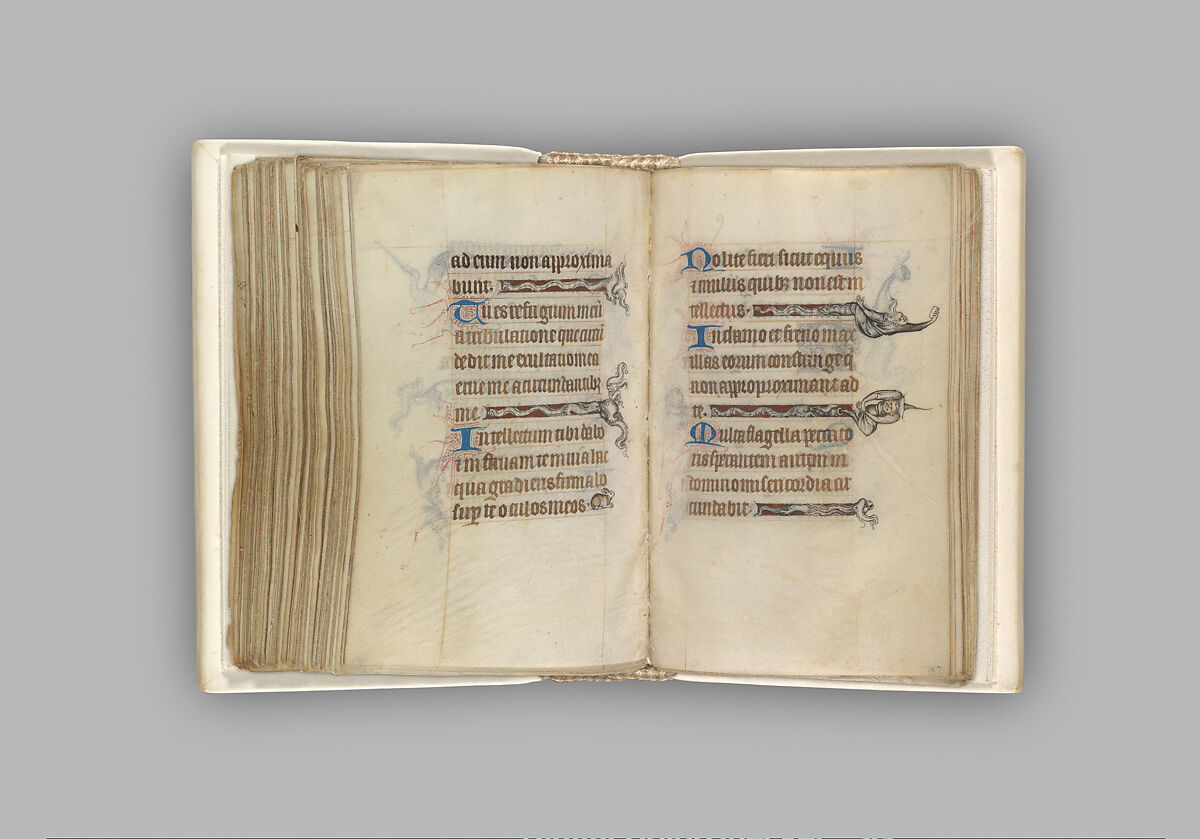 ad eum non approxima
bunt.
Tu es refugium meū
a tribulatione que circū
dedit me exultatio mea
erue me a circumdantibꝫ
me
Intellectum tibi dabo
⁊ instruam te in uia hac
qua gradieris firmabo
sup̄ te oculos meos.
Nolite fieri sicut equus
⁊ mulus quibꝫ non est in
tellectus.
In chamo et freno max
illas eorum constringe q̄
non approproximant ad
te.
Multa flagella peccato
ris sperantem autem in
domino misericordia cir
cundabit.